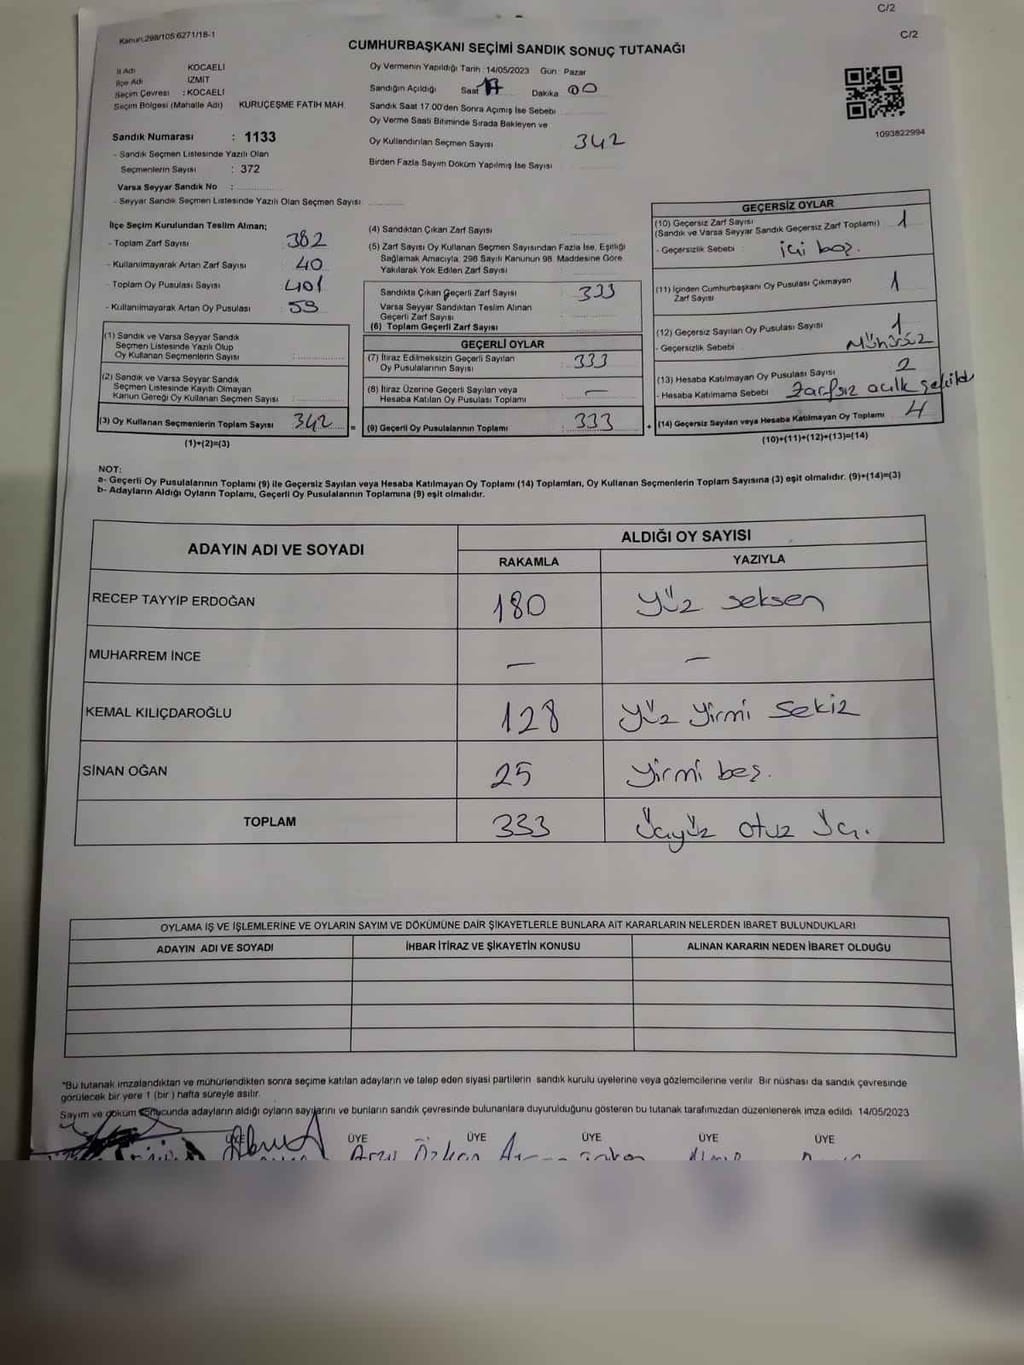 C/2
C/2
Kanun:298/105:6271/18-1
CUMHURBAŞKANI SEÇİMİ SANDIK SONUÇ TUTANAĞI
İl Adı KOCAELİ
İlçe Adı İZMİT
Seçim Çevresi : KOCAELİ
Seçim Bölgesi (Mahalle Adı) KURUÇEŞME FATİH MAH.
Sandık Numarası : 1133
- Sandık Seçmen Listesinde Yazılı Olan
Seçmenlerin Sayısı : 372
Varsa Seyyar Sandık No :
- Seyyar Sandık Seçmen Listesinde Yazılı Olan Seçmen Sayısı
Oy Vermenin Yapıldığı Tarih :14/05/2023 Gün : Pazar
Sandığın Açıldığı Saat 17 Dakika 00
Sandık Saat 17.00'den Sonra Açımış İse Sebebi
Oy Verme Saati Bitiminde Sırada Bekleyen ve
Oy Kullandırılan Seçmen Sayısı 342
Birden Fazla Sayım Döküm Yapılmış İse Sayısı
1093822994
İlçe Seçim Kurulundan Teslim Alınan;
- Toplam Zarf Sayısı 382
- Kullanılmayarak Artan Zarf Sayısı 40
- Toplam Oy Pusulası Sayısı 401
- Kullanılmayarak Artan Oy Pusulası 59
(1) Sandık ve Varsa Seyyar Sandık
Seçmen Listesinde Yazılı Olup
Oy Kullanan Seçmenlerin Sayısı :
(2) Sandık ve Varsa Seyyar Sandık
Seçmen Listesinde Kayıtlı Olmayan
Kanun Gereği Oy Kullanan Seçmen Sayısı :
(3) Oy Kullanan Seçmenlerin Toplam Sayısı 342 =
(1)+(2)=(3)
(4) Sandıktan Çıkan Zarf Sayısı
(5) Zarf Sayısı Oy Kullanan Seçmen Sayısından Fazla İse, Eşitliği
Sağlamak Amacıyla, 298 Sayılı Kanunun 98. Maddesine Göre
Yakılarak Yok Edilen Zarf Sayısı
Sandıkta Çıkan Geçerli Zarf Sayısı 333
Varsa Seyyar Sandıktan Teslim Alınan
Geçerli Zarf Sayısı
(6) Toplam Geçerli Zarf Sayısı
GEÇERLİ OYLAR
(7) İtiraz Edilmeksizin Geçerli Sayılan
Oy Pusulalarının Sayısı : 333
(8) İtiraz Üzerine Geçerli Sayılan veya
Hesaba Katılan Oy Pusulası Toplamı : —
(9) Geçerli Oy Pusulalarının Toplamı : 333 +
GEÇERSİZ OYLAR
(10) Geçersiz Zarf Sayısı
(Sandık ve Varsa Seyyar Sandık Geçersiz Zarf Toplamı) 1
- Geçersizlik Sebebi içi boş.
(11) İçinden Cumhurbaşkanı Oy Pusulası Çıkmayan
Zarf Sayısı 1
(12) Geçersiz Sayılan Oy Pusulası Sayısı 1
- Geçersizlik Sebebi Mühürsüz
(13) Hesaba Katılmayan Oy Pusulası Sayısı 2
- Hesaba Katılmama Sebebi Zarfsız açık şekilde
(14) Geçersiz Sayılan veya Hesaba Katılmayan Oy Toplamı 4
(10)+(11)+(12)+(13)=(14)
NOT:
a- Geçerli Oy Pusulalarının Toplamı (9) ile Geçersiz Sayılan veya Hesaba Katılmayan Oy Toplamı (14) Toplamları, Oy Kullanan Seçmenlerin Toplam Sayısına (3) eşit olmalıdır. (9)+(14)=(3)
b- Adayların Aldığı Oyların Toplamı, Geçerli Oy Pusulalarının Toplamına (9) eşit olmalıdır.
ADAYIN ADI VE SOYADI ALDIĞI OY SAYISI
RAKAMLA YAZIYLA
RECEP TAYYİP ERDOĞAN 180 yüz seksen
MUHARREM İNCE — —
KEMAL KILIÇDAROĞLU 128 yüz yirmi sekiz
SİNAN OĞAN 25 yirmi beş.
TOPLAM 333 Üçyüz otuz üç.
OYLAMA İŞ VE İŞLEMLERİNE VE OYLARIN SAYIM VE DÖKÜMÜNE DAİR ŞİKAYETLERLE BUNLARA AİT KARARLARIN NELERDEN İBARET BULUNDUKLARI
ADAYIN ADI VE SOYADI İHBAR İTİRAZ VE ŞİKAYETİN KONUSU ALINAN KARARIN NEDEN İBARET OLDUĞU
"Bu tutanak imzalandıktan ve mühürlendikten sonra seçime katılan adayların ve talep eden siyasi partilerin sandık kurulu üyelerine veya gözlemcilerine verilir. Bir nüshası da sandık çevresinde
görülecek bir yere 1 (bir ) hafta süreyle asılır.
Sayım ve döküm sonucunda adayların aldığı oyların sayılarını ve bunların sandık çevresinde bulunanlara duyurulduğunu gösteren bu tutanak tarafımızdan düzenlenerek imza edildi. 14/05/2023
ÜYE ÜYE ÜYE ÜYE ÜYE
Arzu Özkan